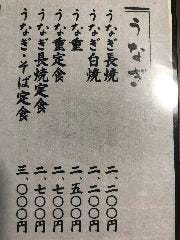 うなぎ
うなぎ長焼 二、二〇〇円
うなぎ白焼 二、二〇〇円
うな重 二、五〇〇円
うな重定食 二、七〇〇円
うなぎ長焼定食 二、七〇〇円
うなぎ・そば定食 三、〇〇〇円